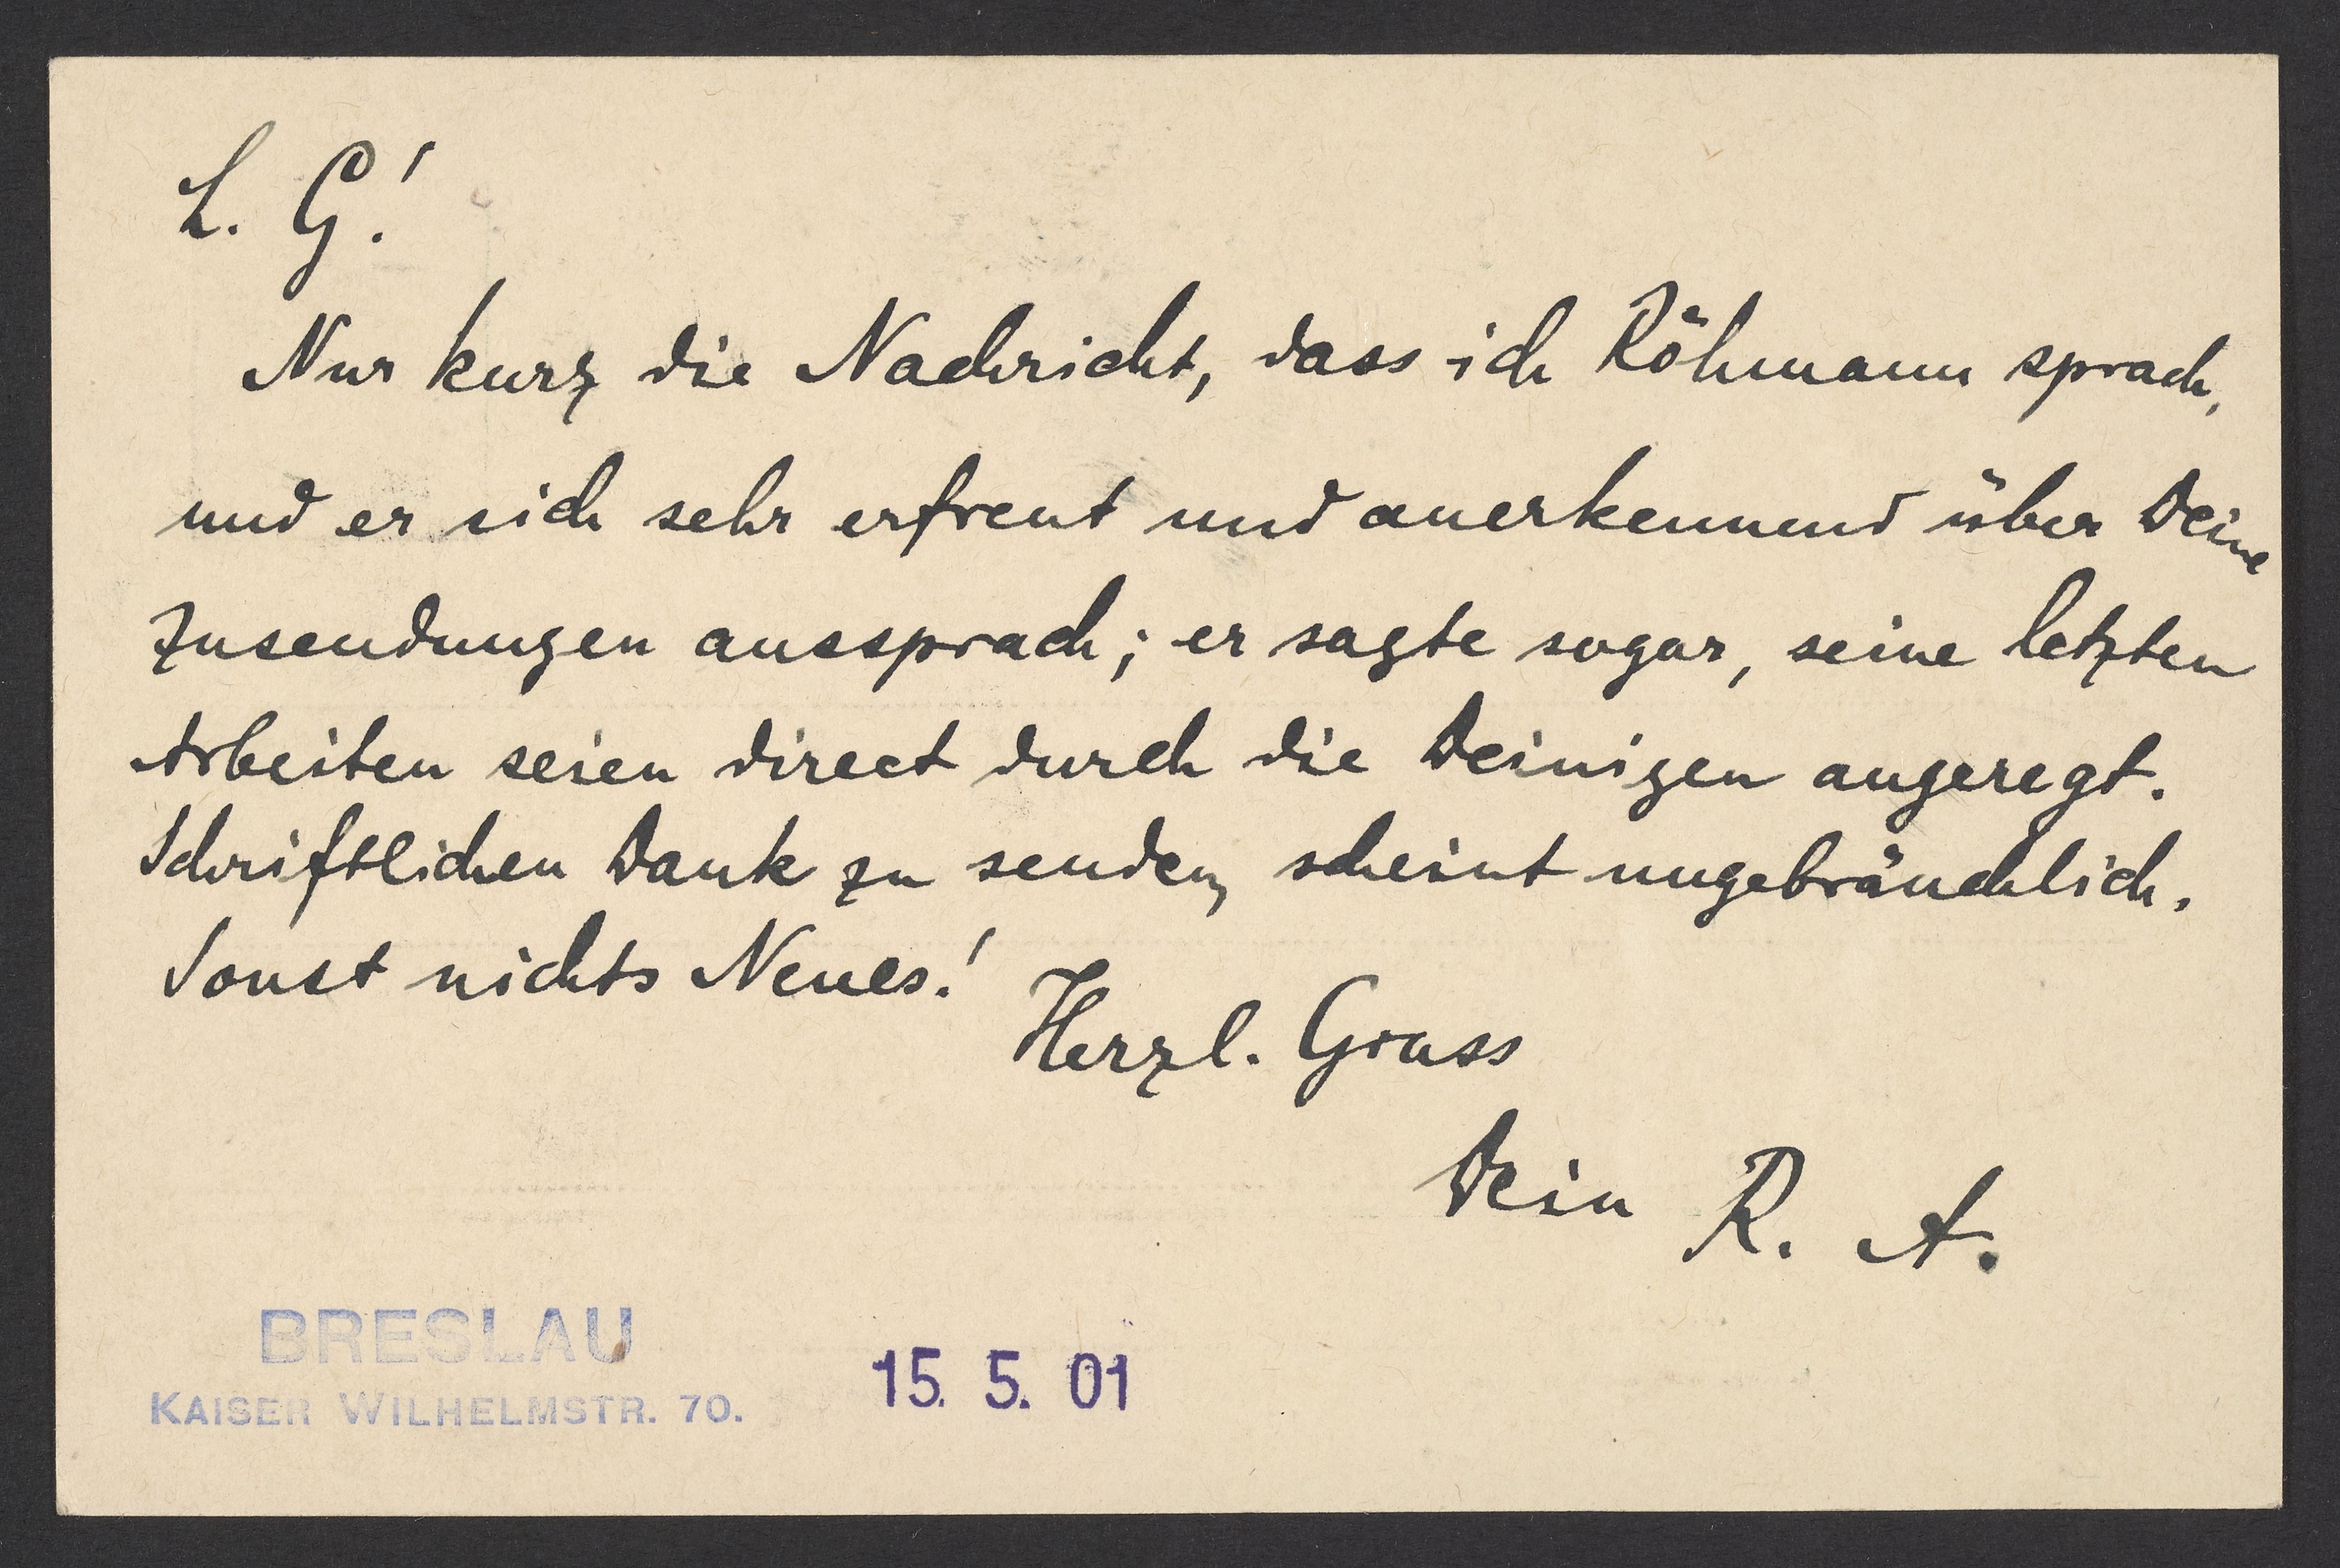 L. G.!
Nur kurz die Nachricht, dass ich Röhmann sprach,
und er sich sehr erfreut und anerkennend über Deine
Zusendungen aussprach; er sagte sogar, seine letzten
Arbeiten seien direct durch die Deinigen angeregt.
Schriftlichen Dank zu senden, scheint ungebräuchlich.
Sonst nichts Neues!
Herzl. Gruss
Dein R. A.
BRESLAU
KAISER WILHELMSTR. 70.
15. 5. 01